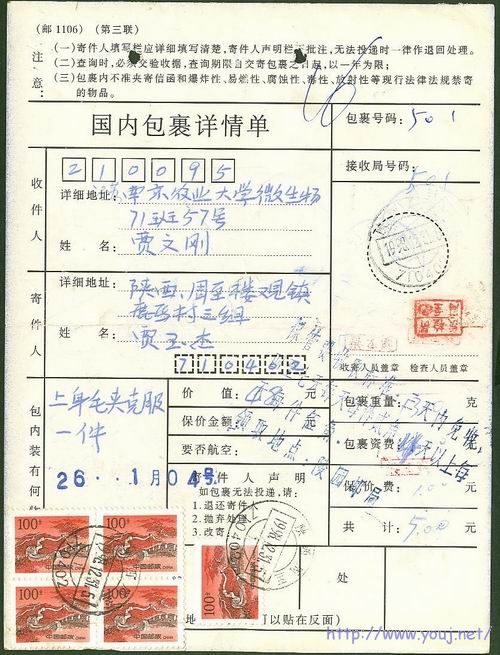 (邮 1106) (第三联)
注意:
(一)寄件人填写栏应详细填写清楚,寄件人声明栏不批注,无法投递时一律作退回处理。
(二)查询时,必须交验收据,查询期限自交寄包裹之日起,以一年为限;
(三)包裹内不准夹寄信函和爆炸性、易燃性、腐蚀性、毒性、放射性等现行法律法规禁寄的物品。
国内包裹详情单
包裹号码: 501
接收局号码:
501
收件人
210095
详细地址: 江苏南京农业大学微生物
71班57号
姓名: 贾文刚
寄件人
详细地址: 陕西周至楼观镇
姓名: 贾玉杰
710402
收寄人员盖章 检查人员盖章
包内装有何物
上年毛夹克服
一件
价值: 元
保价金额:
要否航空:
寄件人声明
如包裹无法投递,请:
1.退还寄件人
2.抛弃处理
3.改寄
包裹重量: 克
包裹资费: 元
保价费: 1.00 元
共计: 5.00 元
领取地点:
26..1月04号
100分
100分
中国邮政 CHINA
中国邮政 CHINA
100分
处
(可以贴在反面)
http://www.youj.net/